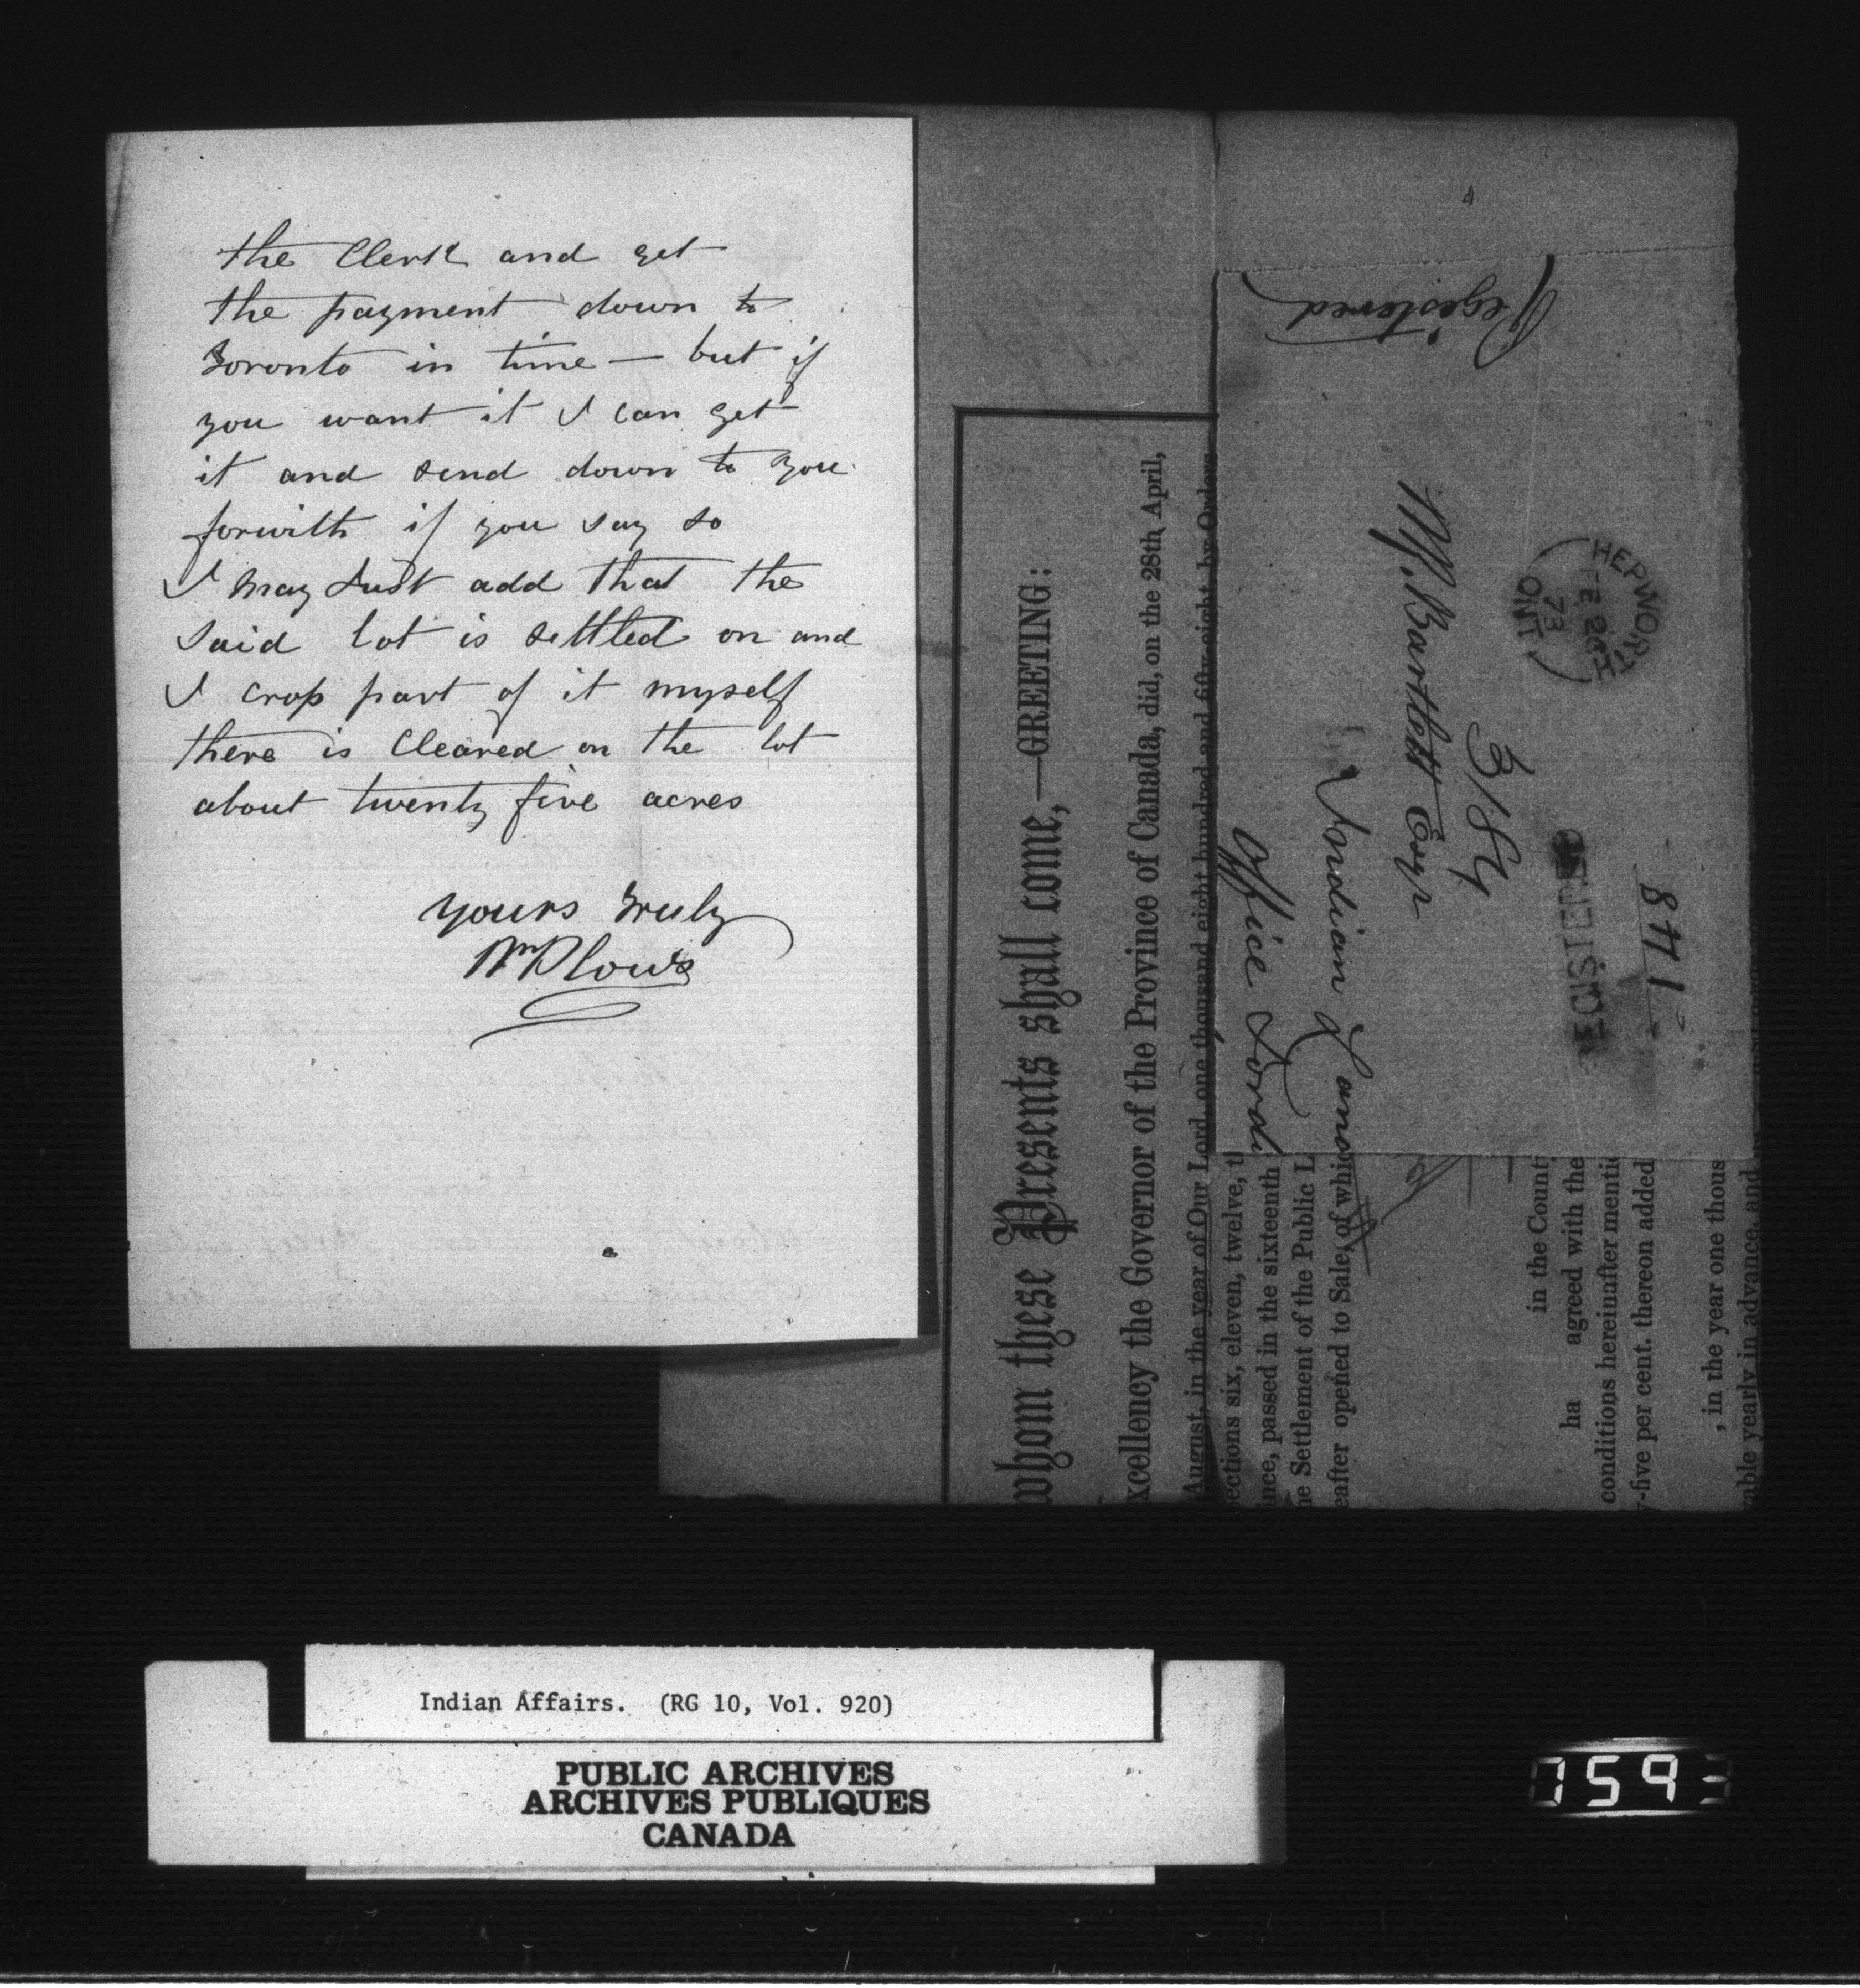 the Clerk and get
the payment down to
Toronto in time — but if
you want it I can get
it and send down to you
forwith if you say so
I may Just add that the
said lot is settled on and
I crop part of it myself
there is Cleared on the lot
about twenty five acres
yours truly
Wm Plows
Registered
HEPWORTH
FE 26
73
ONT
W. Bartlett Esqr
Indian Lands
Office
3/84
REGISTERED
841
whom these Presents shall come,—GREETING:
xcellency the Governor of the Province of Canada, did, on the 28th April,
August, in the year of Our Lord, one thousand eight hundred and fifty-eight, by Orders
ections six, eleven, twelve, t
ince, passed in the sixteenth
he Settlement of the Public L
eafter opened to Sale, of which
in the County
ha agreed with the
conditions hereinafter mentio
y-five per cent. thereon added
, in the year one thous
able yearly in advance, and
Indian Affairs. (RG 10, Vol. 920)
PUBLIC ARCHIVES
ARCHIVES PUBLIQUES
CANADA
0593